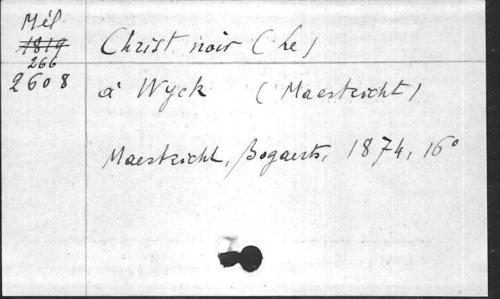 Mél.
1819
266
2608
Christ noir (Le)
à Wyck (Maestricht)
Maestricht, Bogaerts, 1874, 16°